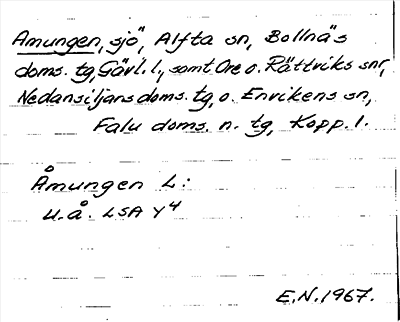 Amungen, sjö, Alfta sn, Bollnäs
doms. tg, Gävl. l., samt Ore o. Rättviks snr,
Nedansiljans doms. tg, o. Envikens sn,
Falu doms. n. tg, Kopp. l.
Åmungen L:
u.å. LSA Y4
E.N. 1967.